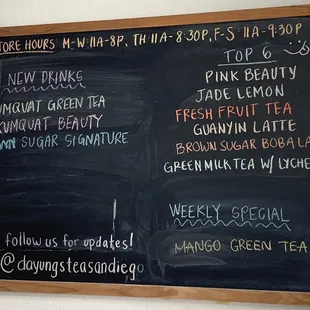 STORE HOURS M-W: 11A-8P, TH: 11A-8:30P, F-S 11A-9:30P
NEW DRINKS
KUMQVAT GREEN TEA
KUMQUAT BEAUTY
SUGAR SIGNATURE
follow us for updates!
@dayungsteasandiego
TOP 6
PINK BEAUTY
JADE LEMON
FRESH FRUIT TEA
GUANYIN LATTE
BROWN SUGAR BOBA LA
GREEN MILK TEA W/ LYCHE
WEEKLY SPECIAL
MANGO GREEN TEA